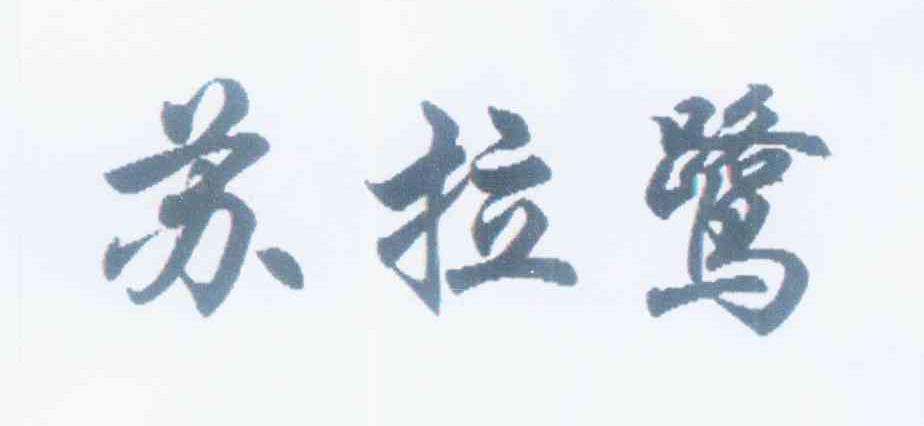 苏拉鹭